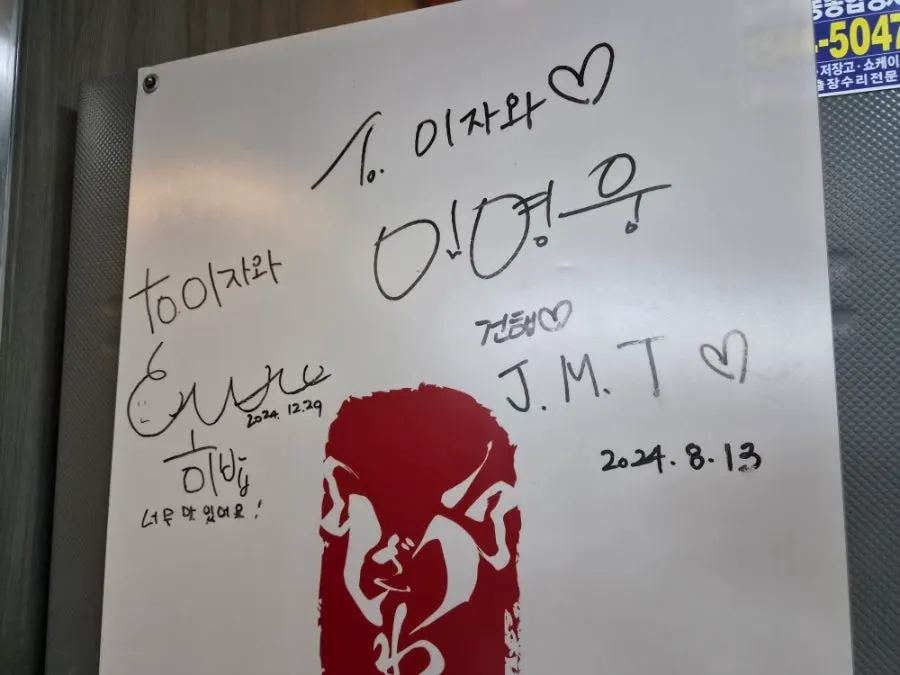 To. 이자와♡
임영웅
건행♡
J.M.T ♡
2024.8.13
to.이자와
2024.12.29
히밥
너무 맛있어요!
ざわ
-5047
저장고·쇼케이
출장수리전문